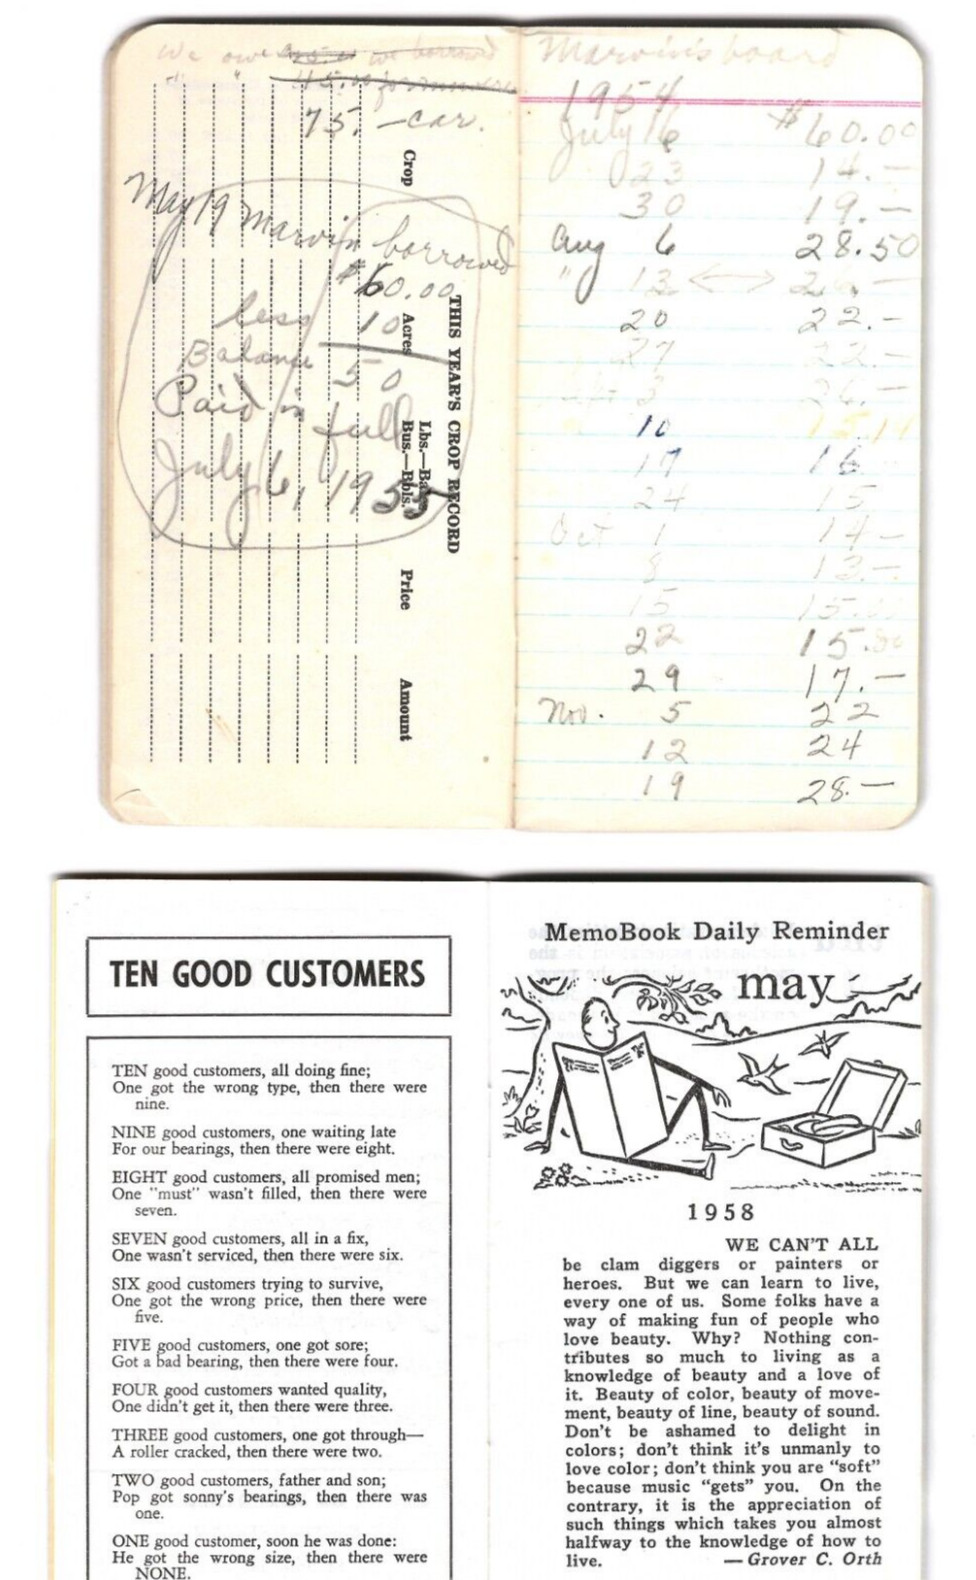 We owe we borrowed
75. - car.
May 19 Marvin borrowed
$60.00
less 10
Balance 50
Paid in full
July 6, 1955
THIS YEAR'S CROP RECORD
Crop Acres Lbs.—Bales Bus.—Bbls. Price Amount
Marvin's board
1954
July 16 $60.00
23 14.—
30 19.—
Aug 6 28.50
" 13 <—>
20 22.—
27 22.—
3 26.—
10
17 16
24 15
Oct 1 14—
8 13.—
15 15.00
22 15.00
29 17.—
Nov. 5 22
12 24
19 28.—
TEN GOOD CUSTOMERS
TEN good customers, all doing fine;
One got the wrong type, then there were
nine.
NINE good customers, one waiting late
For our bearings, then there were eight.
EIGHT good customers, all promised men;
One "must" wasn't filled, then there were
seven.
SEVEN good customers, all in a fix,
One wasn't serviced, then there were six.
SIX good customers trying to survive,
One got the wrong price, then there were
five.
FIVE good customers, one got sore;
Got a bad bearing, then there were four.
FOUR good customers wanted quality,
One didn't get it, then there were three.
THREE good customers, one got through—
A roller cracked, then there were two.
TWO good customers, father and son;
Pop got sonny's bearings, then there was
one.
ONE good customer, soon he was done:
He got the wrong size, then there were
NONE.
MemoBook Daily Reminder
may
1958
WE CAN'T ALL
be clam diggers or painters or
heroes. But we can learn to live,
every one of us. Some folks have a
way of making fun of people who
love beauty. Why? Nothing con-
tributes so much to living as a
knowledge of beauty and a love of
it. Beauty of color, beauty of move-
ment, beauty of line, beauty of sound.
Don't be ashamed to delight in
colors; don't think it's unmanly to
love color; don't think you are "soft"
because music "gets" you. On the
contrary, it is the appreciation of
such things which takes you almost
halfway to the knowledge of how to
live. — Grover C. Orth